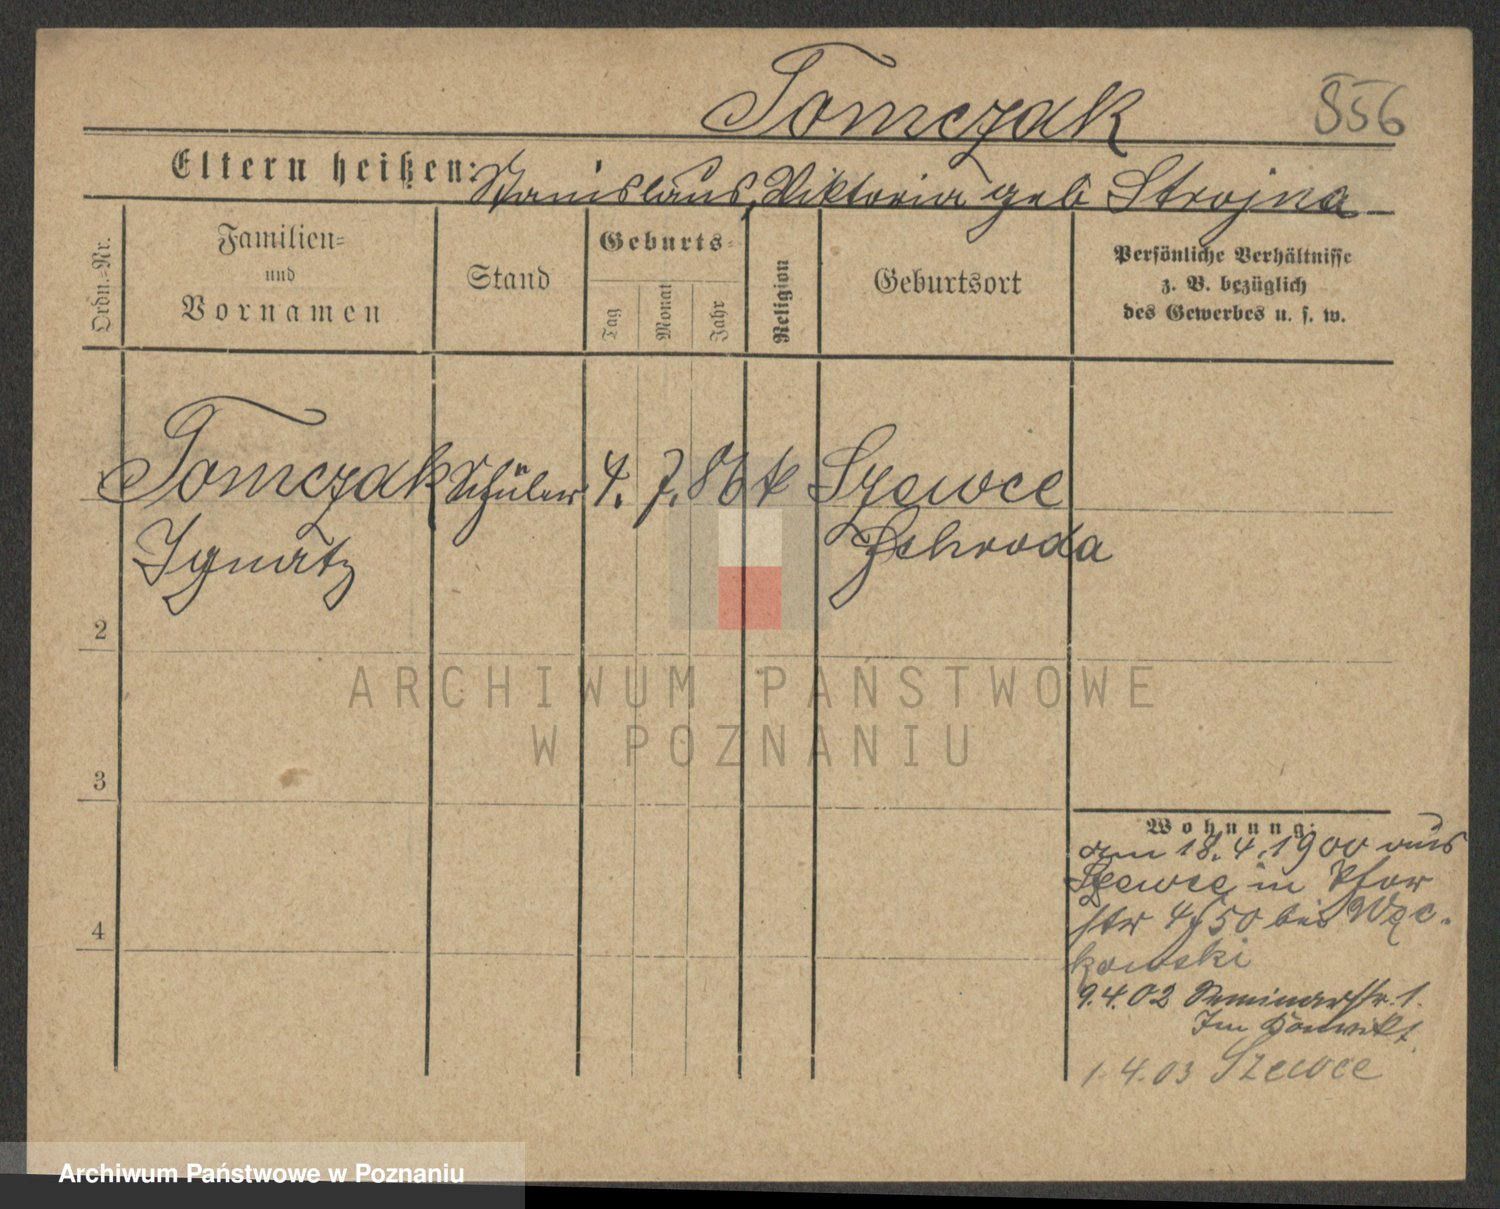 Tomczak
856
Eltern heißen: Stanislaus, Viktoria geb Strojna
Ordn.-Nr.
Familien-
und
Vornamen
Stand
Geburts-
Tag
Monat
Jahr
Religion
Geburtsort
Persönliche Verhältnisse
z. B. bezüglich
des Gewerbes u. s. w.
Tomczak Schüler 4. 7. 86 k Szewce
Ignatz Schroda
2
3
4
Wohnung:
am 18.4.1900 aus
Szewce in
str 4/50 bei Węc-
kowski
9.4.02 Seminarstr. 1.
Im Konvikt
1.4.03 Szewce
ARCHIWUM PAŃSTWOWE
W POZNANIU
Archiwum Państwowe w Poznaniu